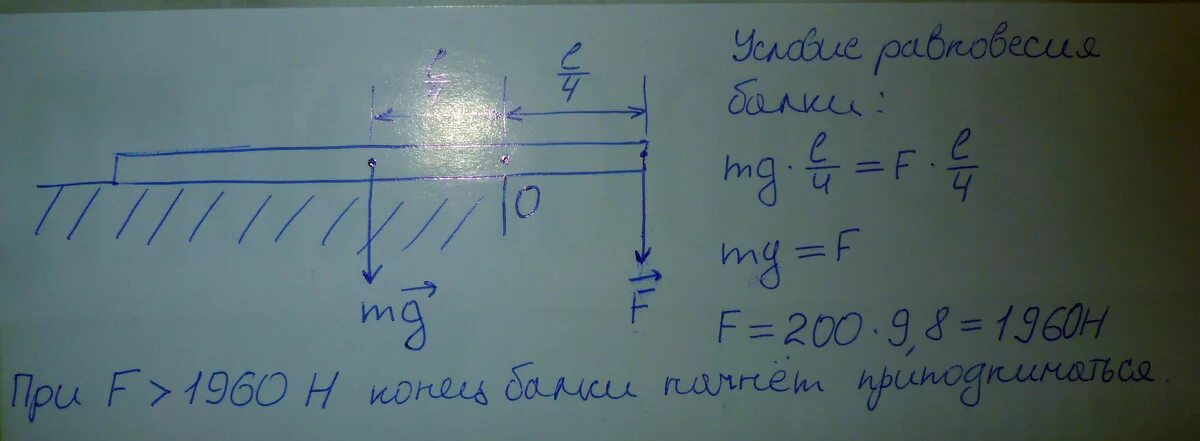 l/4
l/4
O
mg⃗
F⃗
Условие равновесия
балки:
mg · l/4 = F · l/4
mg = F
F = 200 · 9,8 = 1960Н
При F > 1960 Н конец балки начнёт приподниматься.